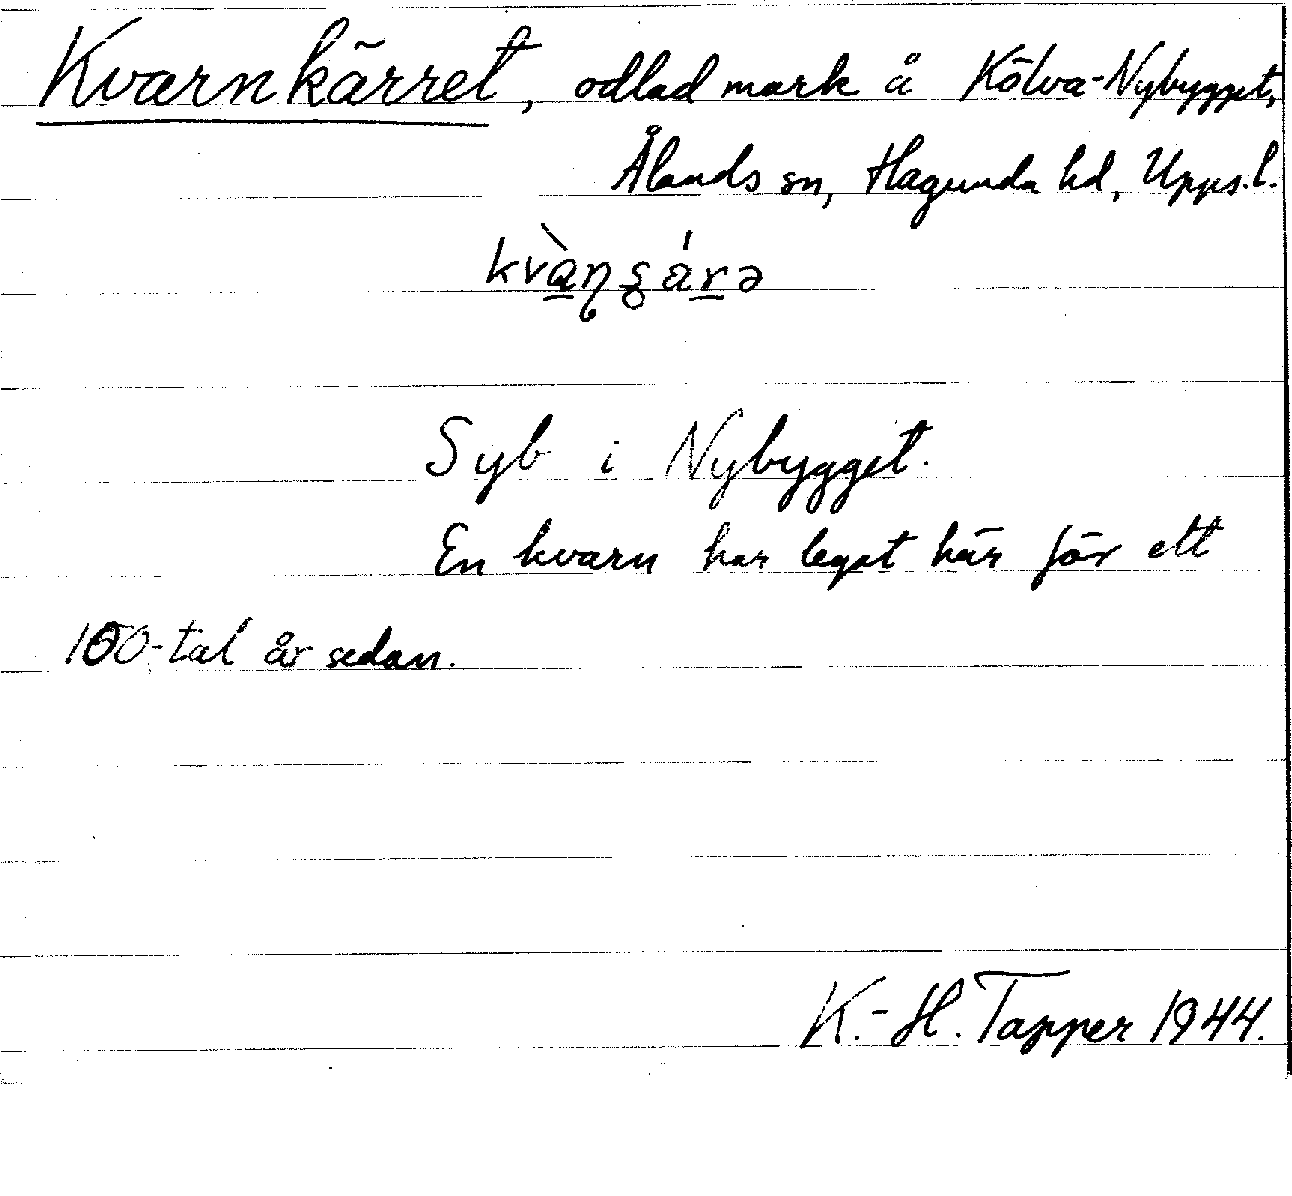 Kvarnkärret, odlad mark å Kölva-Nybygget,
Ålands sn, Hagunda hd, Upps. l.
kvàɳʂárə
Syb i Nybygget.
En kvarn har legat här för ett
100-tal år sedan.
K.-H. Tapper 1944.